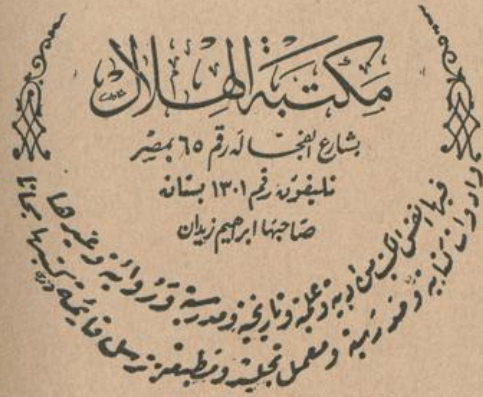 مكتبة الهلال
بشارع الفجالة رقم ٦٥ بمصر
تليفون رقم ١٣٠١ بستان
صاحبها ابراهيم زيدان
فيها انفس الكتب من ادبية وعلمية وتاريخية ومدرسية وروائية وغيرها
وادوات كتابية ومدرسية ومعمل تجليد ومطبعة ترسل قايمة كتبها مجانا